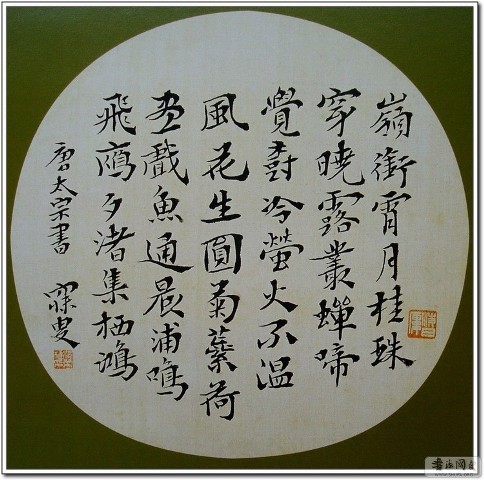 嶺銜宵月桂珠
穿曉露叢蟬啼
覺樹冷螢火不溫
風花生圓菊蘂荷
盡戲魚通晨浦鳴
飛鴈夕渚集栖鴻
唐太宗書 寐叟